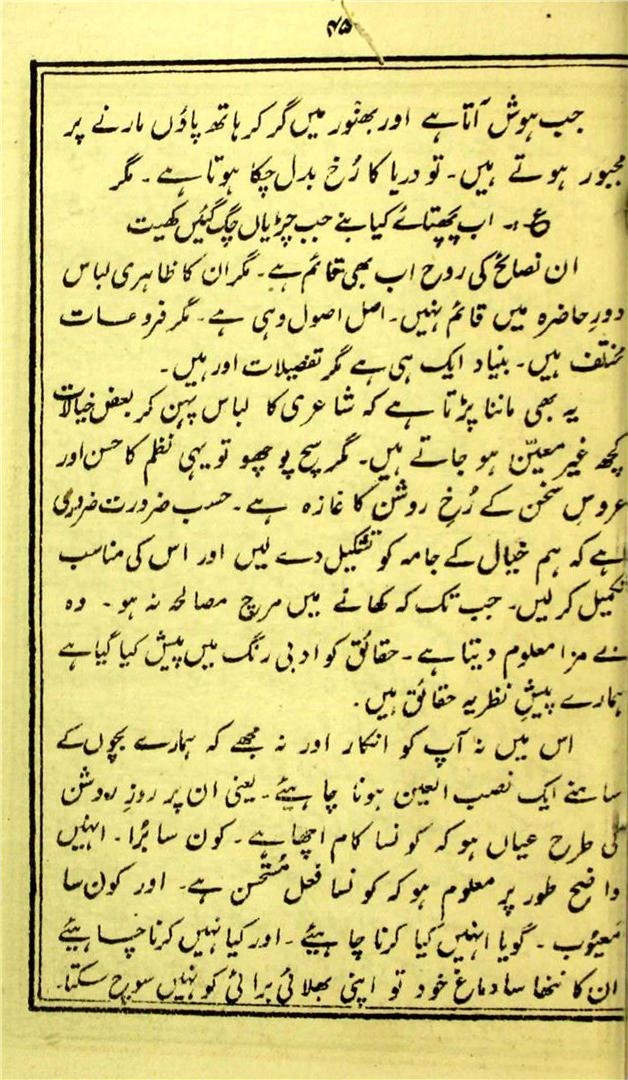 ۴۵
جب ہوش آتا ہے اور بھنور میں گر کر ہاتھ پاؤں مارنے پر
مجبور ہوتے ہیں۔ تو دریا کا رُخ بدل چکا ہوتا ہے۔ مگر
ع ۔ اب پچھتائے کیا بنے جب چڑیاں چگ گئیں کھیت
ان نصائح کی روح اب بھی قائم ہے۔ مگر ان کا ظاہری لباس
دورِ حاضرہ میں قائم نہیں۔ اصل اصول وہی ہے۔ مگر فروعات
مختلف ہیں۔ بنیاد ایک ہی ہے مگر تفصیلات اور ہیں۔
یہ بھی ماننا پڑتا ہے کہ شاعری کا لباس پہن کر بعض خیالات
کچھ غیر معیّن ہو جاتے ہیں۔ مگر سچ پوچھو تو یہی نظم کا حسن اور
عروسِ سخن کے رُخِ روشن کا غازہ ہے۔ حسب ضرورت ضروری
ہے کہ ہم خیال کے جامہ کو تشکیل دے لیں اور اس کی مناسب
تکمیل کر لیں۔ جب تک کہ کھانے میں مرچ مصالحہ نہ ہو۔ وہ
بے مزا معلوم دیتا ہے۔ حقائق کو ادبی رنگ میں پیش کیا گیا ہے
ہمارے پیشِ نظر یہ حقائق ہیں۔
اس میں نہ آپ کو انکار اور نہ مجھے کہ ہمارے بچوں کے
سامنے ایک نصب العین ہونا چاہیئے۔ یعنی ان پر روزِ روشن
کی طرح عیاں ہو کہ کونسا کام اچھا ہے۔ کون سا بُرا۔ انہیں
واضح طور پر معلوم ہو کہ کونسا فعل مُستحسن ہے۔ اور کون سا
معیُوب۔ گویا انہیں کیا کرنا چاہیئے۔ اور کیا نہیں کرنا چاہیئے
ان کا ننھا سا دماغ خود تو اپنی بھلائی برائی کو نہیں سوچ سکتا۔